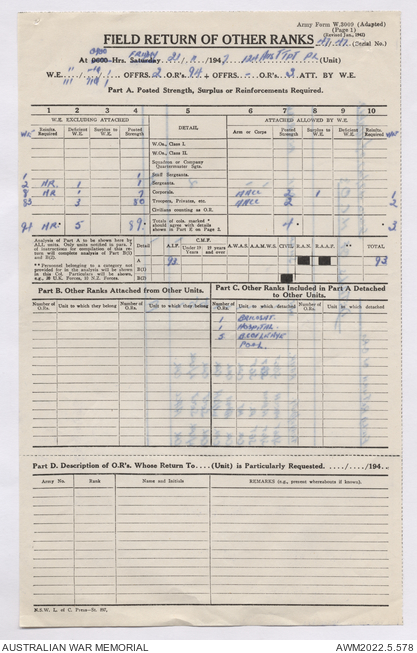 Army Form W.3009 (Adapted)
(Page 1)
(Revised Jan., 1942)
FIELD RETURN OF OTHER RANKS (Serial No.)
At 0600 Hrs. Saturday 21 /194 (Unit)
W.E. OFFRS. 2 OR's. 94 + OFFRS. - O.R's. 3 ATT. BY W.E.
Part A. Posted Strength, Surplus or Reinforcements Required.
W.E. EXCLUDING ATTACHED
ATTACHED ALLOWED BY W.E.
1 2 3 4 5 6 7 8 9 10
Reinfts. Required
Deficient W.E.
Surplus to W.E.
Posted Strength
DETAIL
Arm or Corps
Posted Strength
Surplus to W.E.
Deficient W.E.
Reinfts. Required
W.Os., Class I.
W.Os., Class II.
Squadron or Company Quartermaster Sgts.
Staff Sergeants.
Sergeants.
Corporals.
Troopers, Privates, etc.
Civilians counting as O.R.
Totals of cols. marked * should agree with details shown in Part E on Page 2.
1 1
2 1 1
8 1 7
83 3 80
94 5 89
Analysis of Part A to be shown here by ALL units. Only units entitled to para. 7 of instructions for compilation of this return will complete analysis of Part B(1) and B(2).
** Personnel belonging to a category not provided for in the analysis will be shown in this Col. Particulars will be shown, e.g., 20 U.K. Forces, 10 N.Z. Forces.
Detail
A.I.F.
C.M.F.
Under 19 Years
19 years and over
A.W.A.S.
A.A.M.W.S.
CIVIL
R.A.N.
R.A.A.F.
**
TOTAL
A 93 93
B(1)
B(2)
Part B. Other Ranks Attached from Other Units.
Part C. Other Ranks Included in Part A Detached to Other Units.
Number of O.Rs.
Unit to which they belong
Number of O.Rs.
Unit to which they belong
Number of O.Rs.
Unit to which detached
Number of O.Rs.
Unit to which detached
1
1 HOSPITAL.
5
Part D. Description of O.R's. Whose Return To....(Unit) is Particularly Requested. ..../..../194..
Army No.
Rank
Name and Initials
REMARKS (e.g., present whereabouts if known).
N.S.W. L. of C. Press—St. 597.
AUSTRALIAN WAR MEMORIAL
AWM2022.5.578